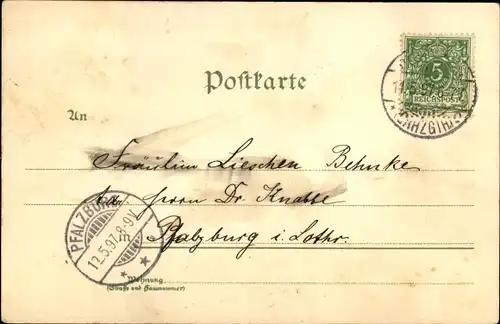 Postkarte
5
REICHSPOST
11.5.97
An
Fräulein Lieschen Behnke
Herrn Dr. Knabbe
PFALZBURG
12.5.97. 8-9V.
Pfalzburg i. Lothr.
Wohnung
(Straße und Hausnummer)